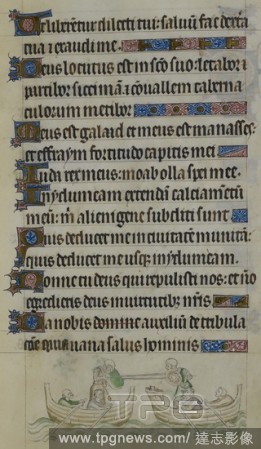 liberentur dilecti tui: salvu fac dextra
tua et exaudi me.
Deus locutus est in sco suo: letabor et
partibor siccima et covallem taberna
culorum metibor
Meus est galaad et meus est manasses:
et effraym fortitudo capitis mei
Iuda rex meus: moab olla spei mee.
In ydumeam extenda calciametu
meu: m alienigene subditi sunt
Quis deducet me in civitate munita:
quis deducet me usq; in ydumeam.
Nonne tu deus qui repulisti nos: et no
egredieris deus in virtutib; nris
Da nobis domine auxiliu de tribula
coe quia vana salus hominis
TPG
www.tpgnews.com/達志影像